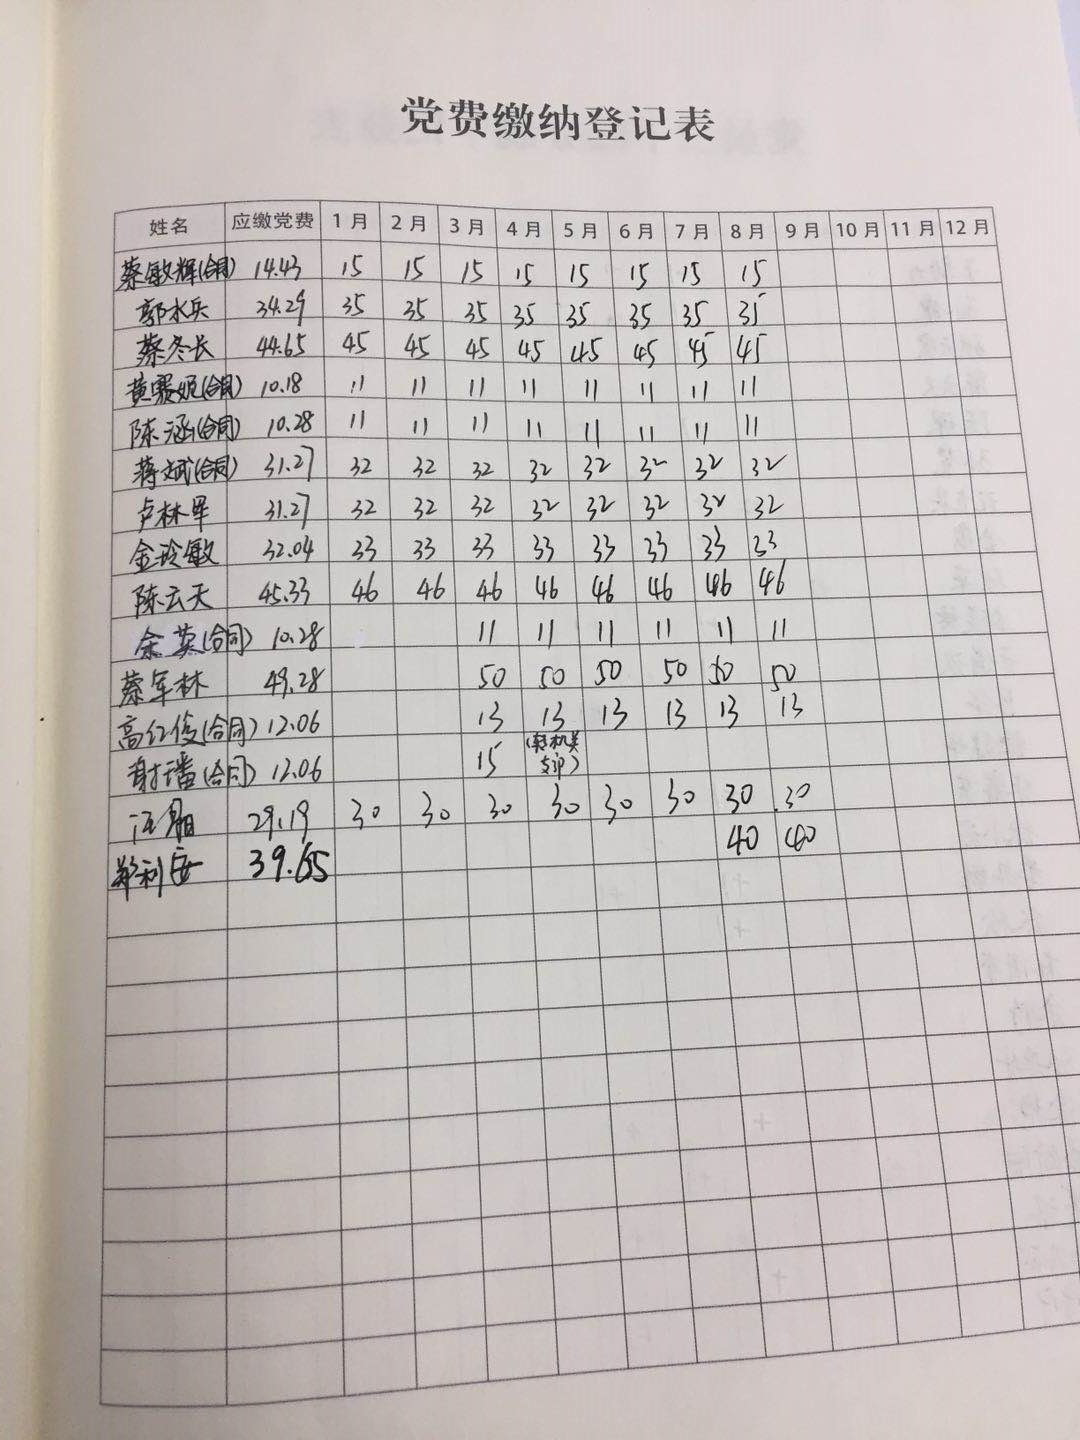 党费缴纳登记表
姓名 应缴党费 1月 2月 3月 4月 5月 6月 7月 8月 9月 10月 11月 12月
蔡敏辉(合同) 14.43 15 15 15 15 15 15 15 15
郭水兵 34.29 35 35 35 35 35 35 35 35
蔡冬长 44.65 45 45 45 45 45 45 45 45
黄赛妮(合同) 10.18 11 11 11 11 11 11 11 11
陈涵(合同) 10.28 11 11 11 11 11 11 11 11
蒋斌(合同) 31.27 32 32 32 32 32 32 32 32
卢林军 31.27 32 32 32 32 32 32 32 32
金玲敏 32.04 33 33 33 33 33 33 33 33
陈云天 45.33 46 46 46 46 46 46 46 46
余英(合同) 10.28 11 11 11 11 11 11
蔡军林 49.28 50 50 50 50 50 50
高红俊(合同) 12.06 13 13 13 13 13 13
(合同) 12.06 15 (转机关
支部)
29.19 30 30 30 30 30 30 30 30
郑利安 39.65 40 40